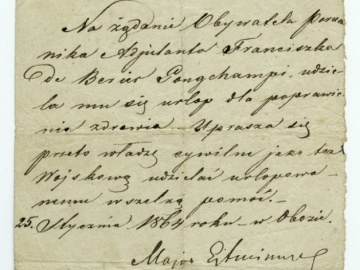 Na żądanie Obywatela Porucz
nika Adjutanta Franciszka
de Berier Longchampi, udzie
la mu się urlop dla poprawie
nia zdrowia – Uprasza się
przeto władzę cywilne jako też
Wojskową udzielać urlopowa
nemu wszelką pomoc. –
25. Stycznia 1864 roku – w Obozie.
Major